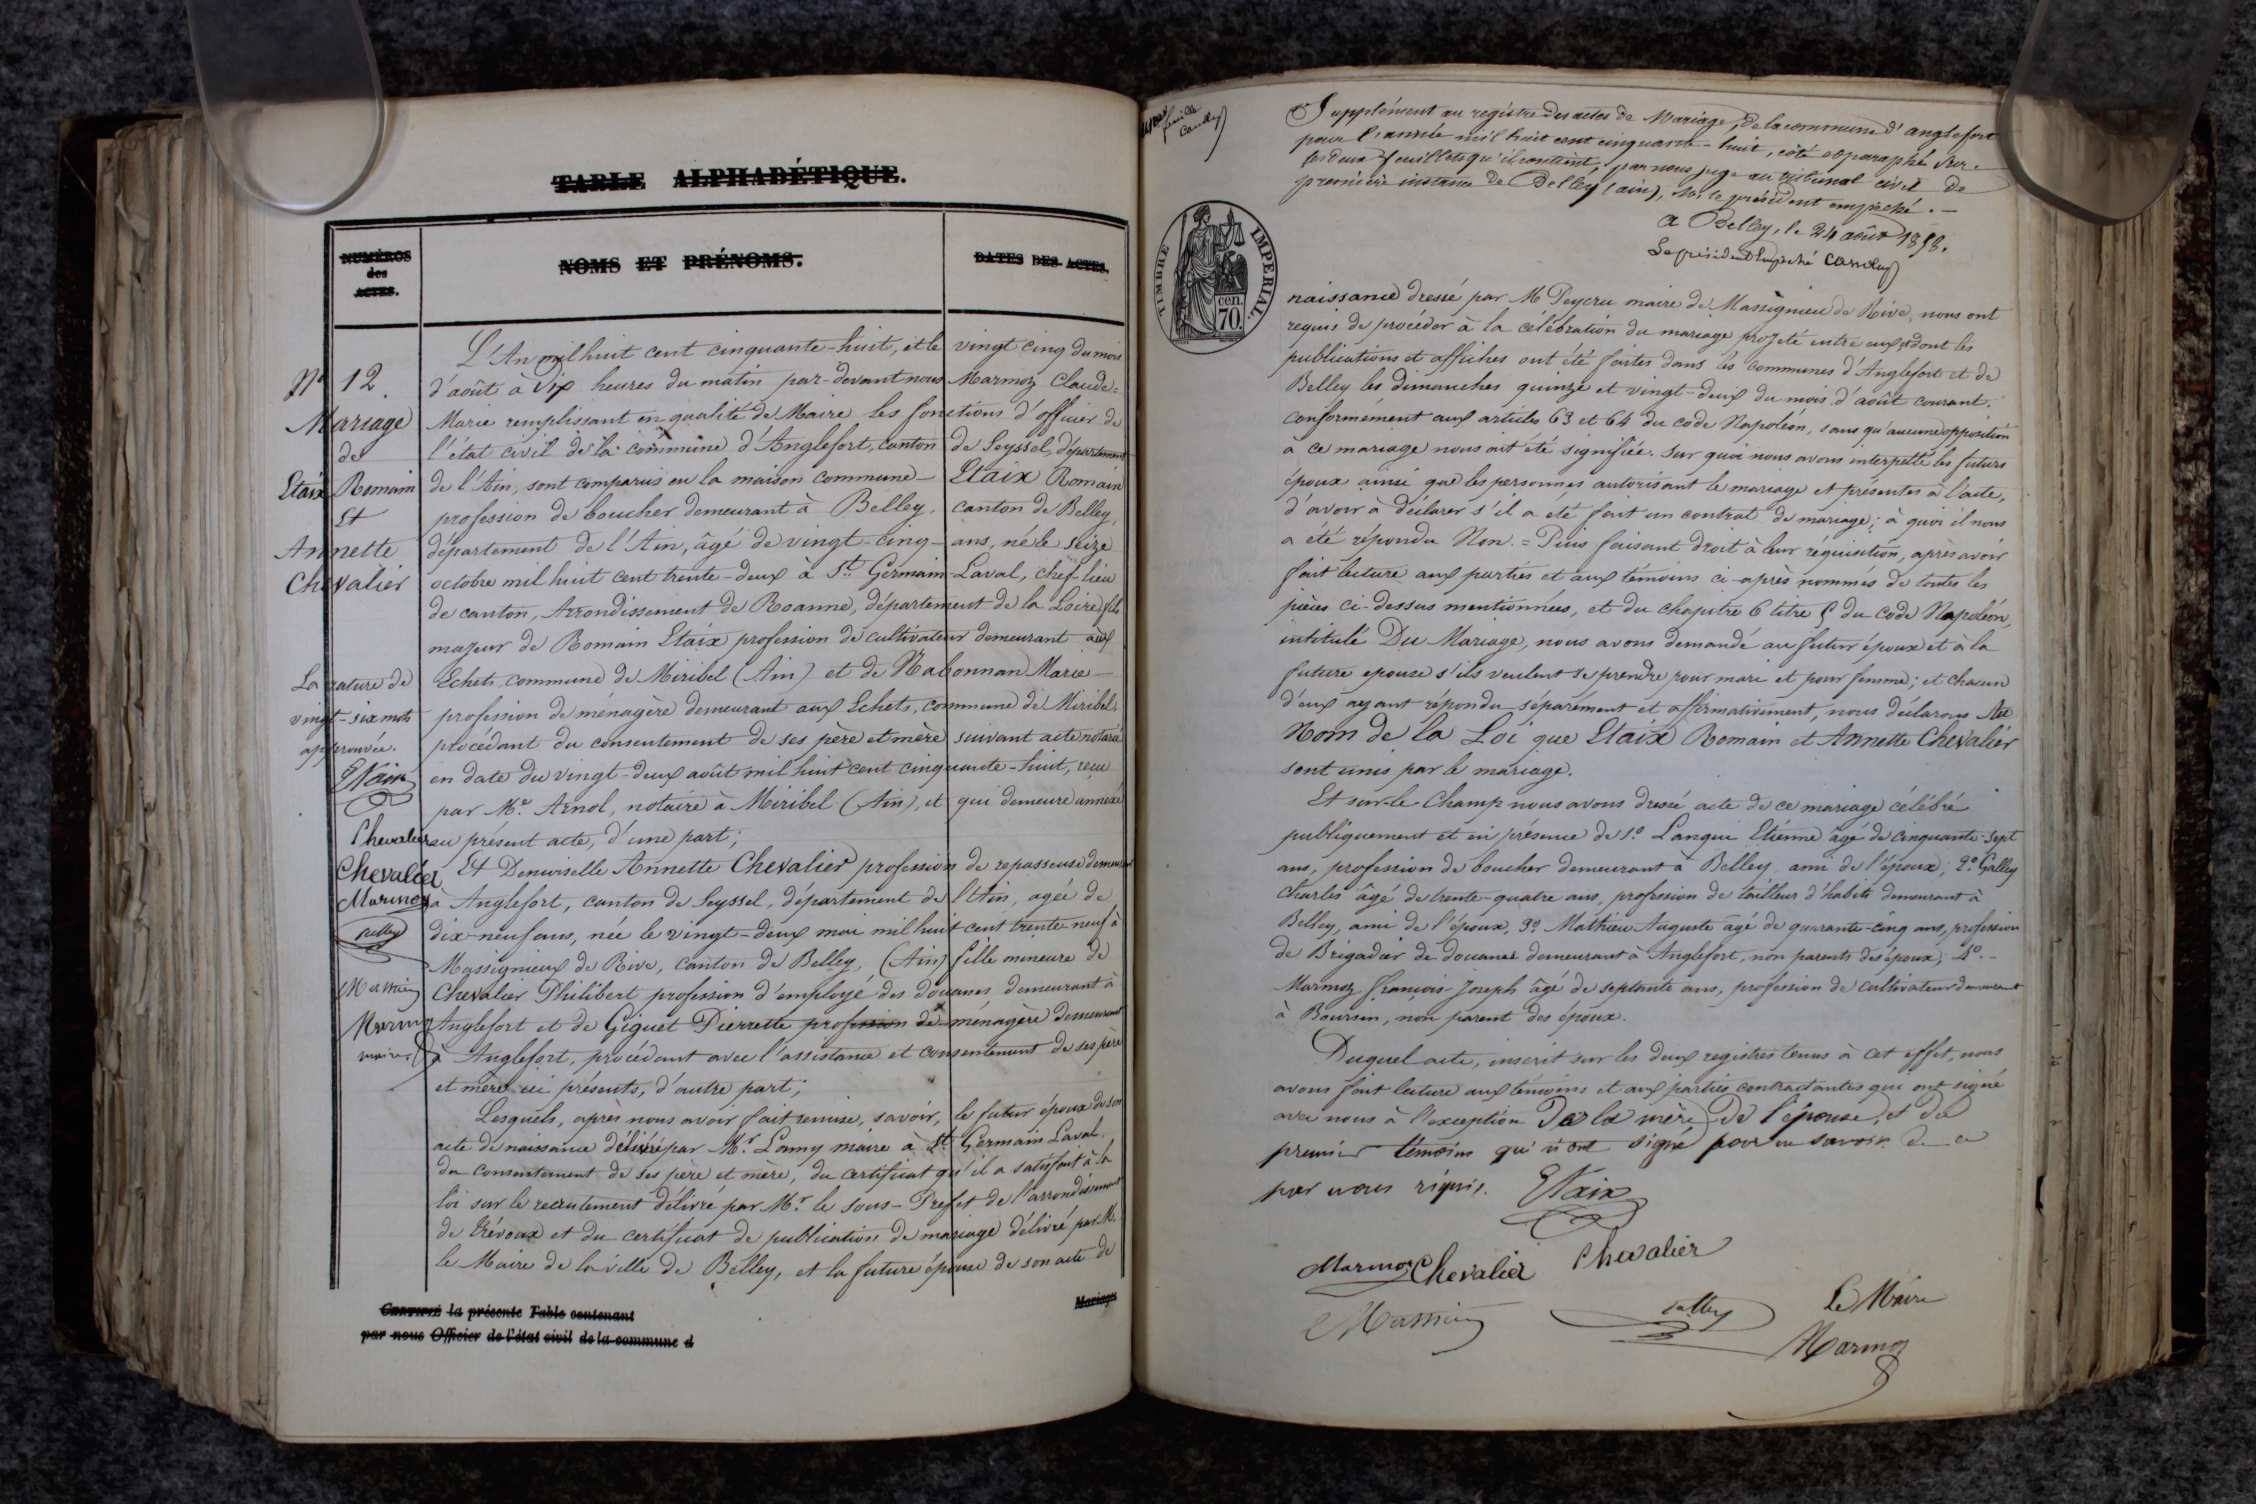 TABLE ALPHABÉTIQUE.
NUMÉROS
des
ACTES.
NOMS ET PRÉNOMS.
DATES DES ACTES.
Nº 12.
Mariage
de
Etaix Romain
Et
Annette
Chevalier
La rature de
vingt-six mots
approuvée.
Etaix
Chevalier
Chevalier
Marmoz
Galley
Mathieu
Marmoz
maire
L'An mil huit cent cinquante-huit, et le vingt cinq du mois
d'août à dix heures du matin par-devant nous Marmoz Claude=
Marie remplissant en qualité de Maire les fonctions d'officier de
l'état civil de la commune d'Anglefort, canton de Seyssel, département
de l'Ain, sont comparus en la maison commune Etaix Romain
profession de boucher demeurant à Belley, canton de Belley,
département de l'Ain, âgé de vingt-cinq ans, né le seize
octobre mil huit cent trente-deux à St. Germain-Laval, chef-lieu
de canton, Arrondissement de Roanne, département de la Loire, fils
majeur de Romain Etaix profession de cultivateur demeurant aux
Echets, commune de Miribel (Ain) et de Nabonnan Marie
profession de ménagère demeurant aux Echets, commune de Miribel,
procédant du consentement de ses père et mère suivant acte notarié
en date du vingt-deux août mil huit cent cinquante-huit, reçu
par Me. Arnol, notaire à Miribel (Ain), et qui demeure annexé
au présent acte, d'une part;
Et Demoiselle Annette Chevalier profession de repasseuse demeurant
à Anglefort, canton de Seyssel, département de l'Ain, agée de
dix-neuf ans, née le vingt-deux mai mil huit cent trente neuf à
Massignieux de Rive, canton de Belley, (Ain) fille mineure de
Chevalier Philibert profession d'employé des douanes demeurant à
Anglefort et de Giguet Pierrette profession de ménagère demeurant
à Anglefort, procédant avec l'assistance et consentement de ses père
et mère ici présents, d'autre part;
Lesquels, après nous avoir fait remise, savoir, le futur époux de son
acte de naissance délivré par Mr. Lonny maire à St. Germain Laval,
du consentement de ses père et mère, du certificat qu'il a satisfait à la
loi sur le recrutement délivré par Mr. le Sous-Préfet de l'arrondissement
de Trévoux et du certificat de publication de mariage délivré par M.
le Maire de la ville de Belley, et la future épouse de son acte de
CERTIFIÉ la présente Table contenant
Mariages
par nous Officier de l'état civil de la commune d
feuille
Supplément au registre des actes de Mariage, de la commune d'anglefort
pour l'année mil huit cent cinquante-huit, coté et paraphé sur
les deux feuillets qu'il contient, par nous juge au tribunal civil de
première instance de Belley (ain), Mr. le président empêché.
a Belley, le 24 août 1858.
Le président empêché
TIMBRE IMPERIAL.
70.
cen.
naissance dressé par M Peycru maire de Massignieu de Rive, nous ont
requis de procéder à la célébration du mariage projeté entre eux et dont les
publications et affiches ont été faites dans les communes d'Anglefort et de
Belley les dimanches quinze et vingt-deux du mois d'août courant,
conformément aux articles 63 et 64 du code Napoléon, sans qu'aucune opposition
à ce mariage nous ait été signifiée. Sur quoi nous avons interpellé les futurs
époux ainsi que les personnes autorisant le mariage et présentes à l'acte,
d'avoir à déclarer s'il a été fait un contrat de mariage; à quoi il nous
a été répondu Non. = Puis faisant droit à leur réquisition, après avoir
fait lecture aux parties et aux témoins ci-après nommés de toutes les
pièces ci-dessus mentionnées, et du chapitre 6 titre 5 du Code Napoléon,
intitulé Du Mariage, nous avons demandé au futur époux et à la
future epouse s'ils veulent se prendre pour mari et pour femme; et chacun
d'eux ayant répondu séparément et affirmativement, nous déclarons Au
Nom de la Loi que Etaix Romain et Annette Chevalier
sont unis par le mariage.
Et sur-le-Champ nous avons dressé acte de ce mariage célébré
publiquement et en présence de 1º Langui Etienne agé de cinquante-sept
ans, profession de boucher demeurant à Belley ami de l'époux; 2º Galley
Charles âgé de trente-quatre ans, profession de tailleur d'habits demeurant à
Belley, ami de l'époux, 3º Mathieu Auguste agé de quarante-cinq ans, profession
de Brigadier de douanes demeurant à Anglefort, non parents des époux; 4º.
Marmoz François-Joseph âgé de septante ans, profession de cultivateur demeurant
à Boursin, non parent des époux.
Duquel acte, inscrit sur les deux registres tenus à cet effet, nous
avons fait lecture aux témoins et aux parties contractantes qui ont signé
avec nous à l'exception de la mère de l'épouse, et du
premier témoins qu'il n'ont signé pour ne savoir de ce
par nous réquis. Etaix
Marmoz Chevalier Chevalier
Mathieu Galley Le Maire
Marmoz